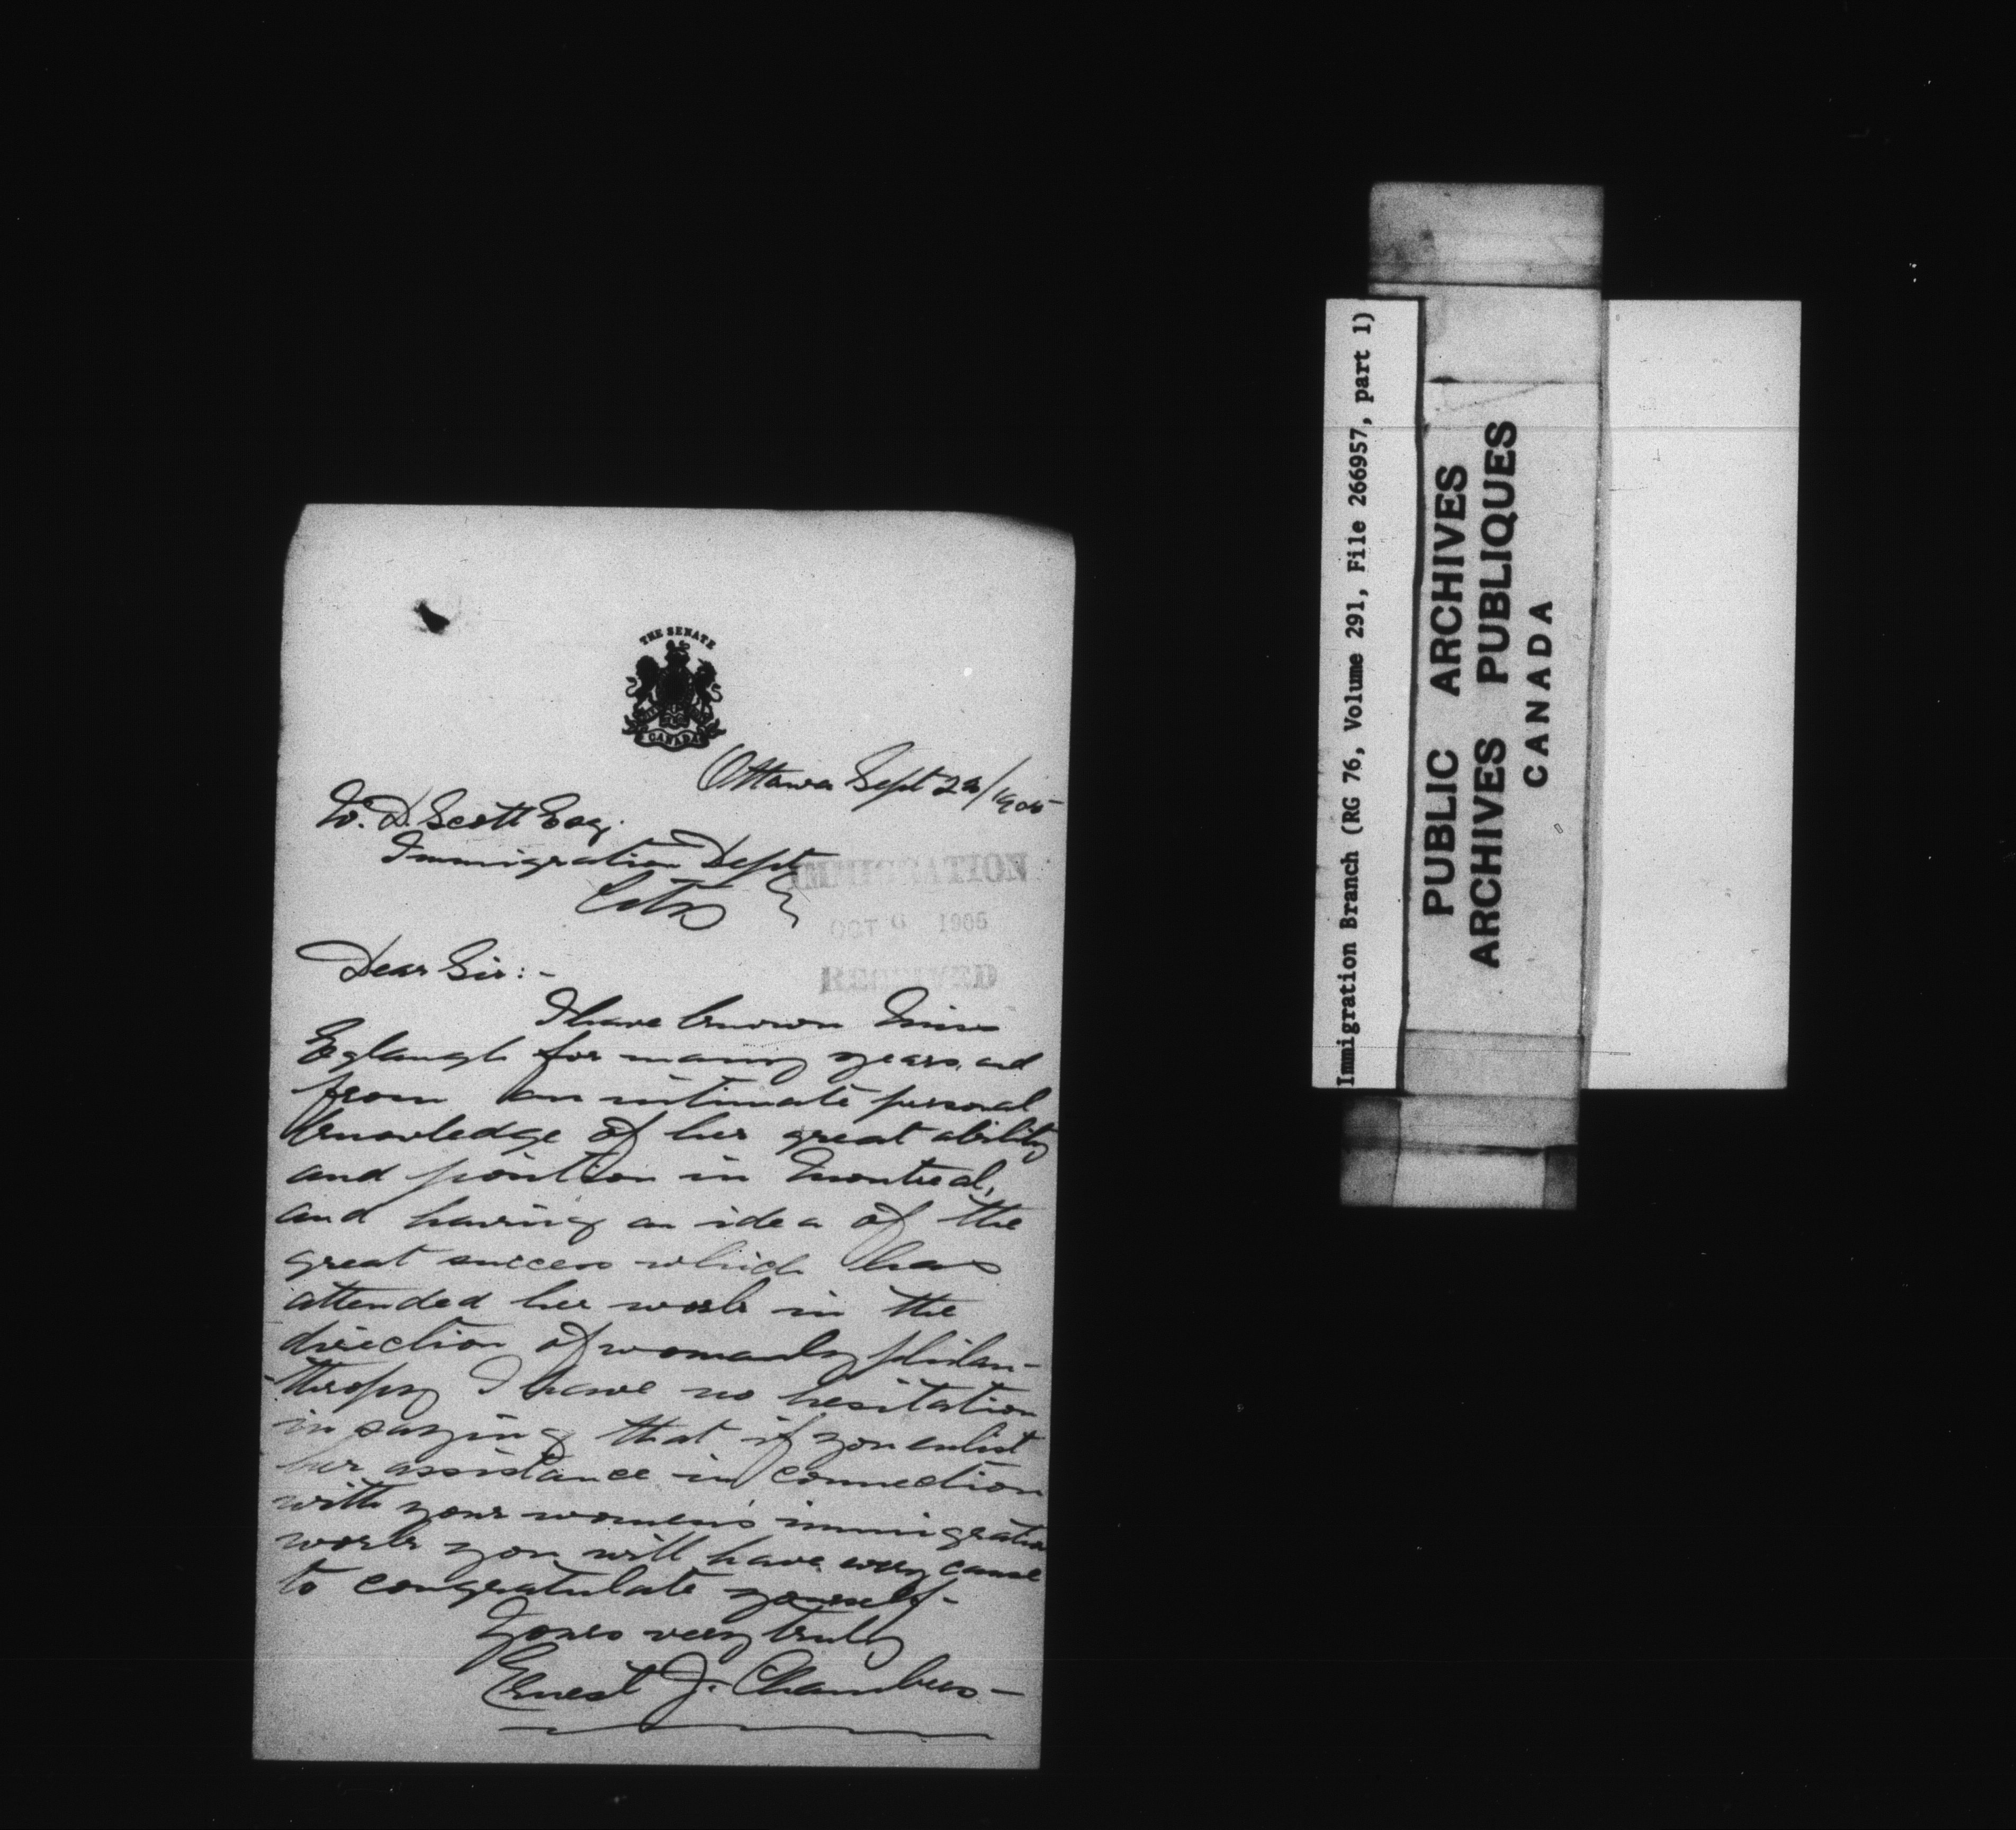 THE SENATE
CANADA
Ottawa Sept 29/1905
W. D. Scott Esq.
Immigration Dept
City
IMMIGRATION
OCT 6 1905
RECEIVED
Dear Sir:-
I have known Miss
for many years and
from an intimate personal
knowledge of her great ability
and position in Montreal,
and having an idea of the
great success which has
attended her work in the
direction of womanly philan-
-thropy I have no hesitation
in saying that if you enlist
her assistance in connection
with your women's immigration
work you will have every cause
to congratulate yourself-
Yours very truly
Ernest J. Chambers-
Immigration Branch (RG 76, Volume 291, File 266957, part 1)
PUBLIC ARCHIVES
ARCHIVES PUBLIQUES
CANADA